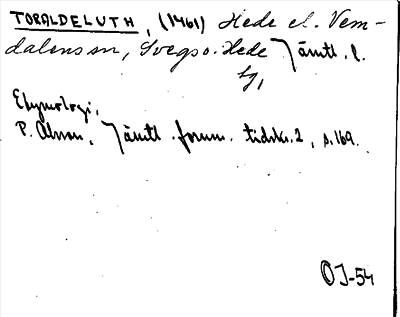 TORALDELUTH, (1461) Hede el. Vem-
dalens sn, Svegs o. Hede Jämtl. l.
tg,
Etymologi,
P. Olsson, Jämtl. fornm. tidskr. 2, s. 169.
OJ-54